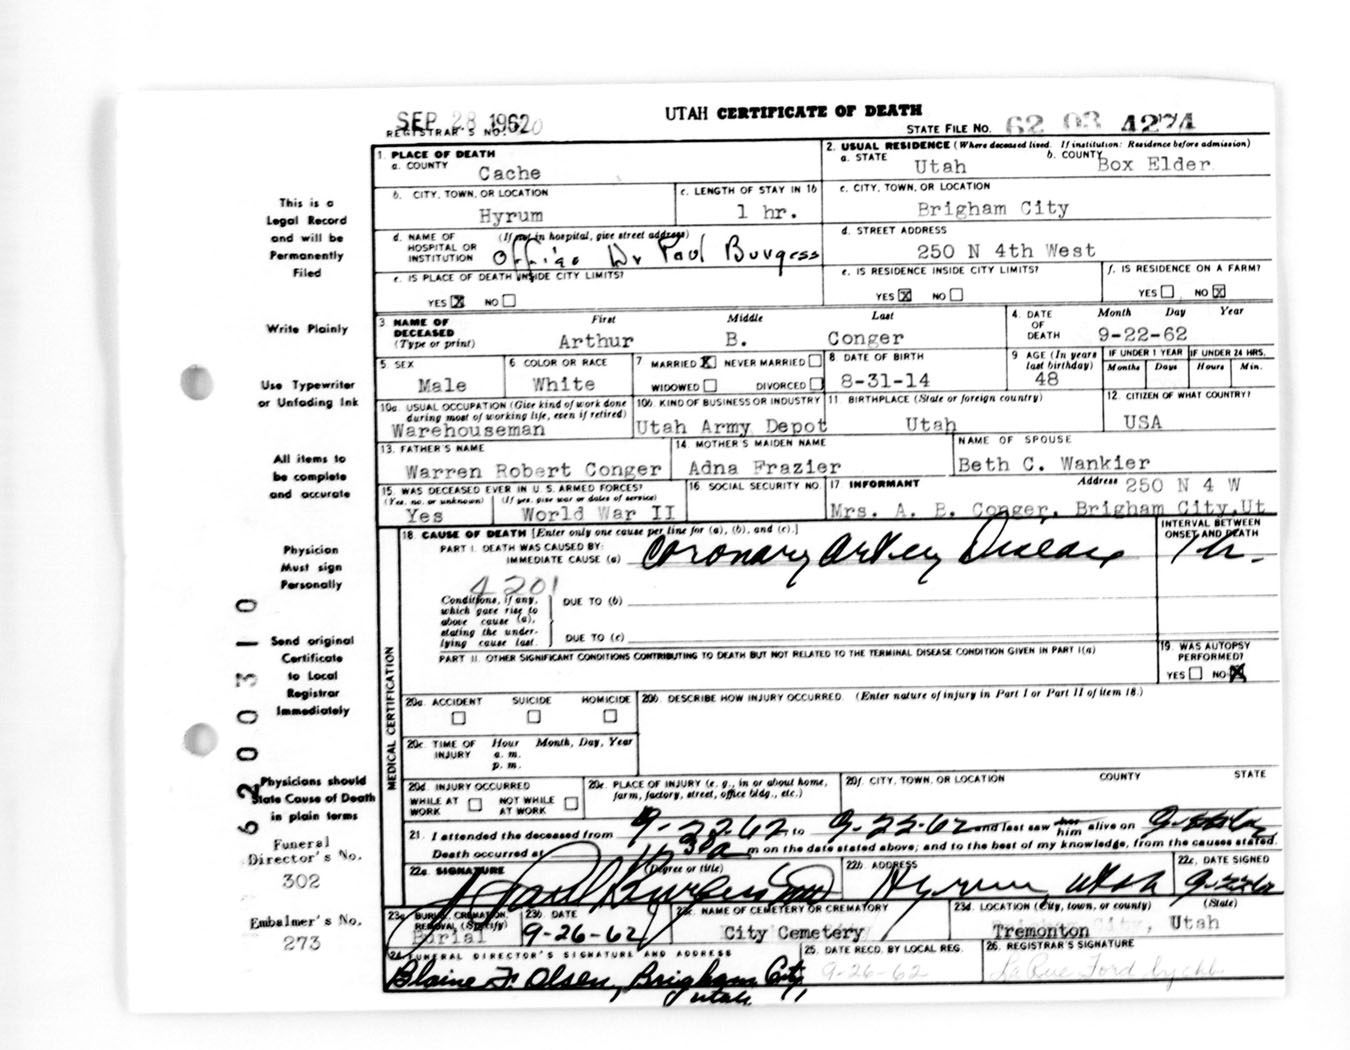 SEP 28 1962
UTAH CERTIFICATE OF DEATH
REGISTRAR'S NO.
STATE FILE NO. 62 03 4274
This is a
Legal Record
and will be
Permanently
Filed
Write Plainly
Use Typewriter
or Unfading Ink
All items to
be complete
and accurate
Physician
Must sign
Personally
Send original
Certificate
to Local
Registrar
Immediately
Physicians should
State Cause of Death
in plain terms
Funeral
Director's No.
302
Embalmer's No.
273
6200310
1. PLACE OF DEATH
a. COUNTY
Cache
2. USUAL RESIDENCE (Where deceased lived. If institution: Residence before admission)
a. STATE Utah b. COUNTY Box Elder
b. CITY, TOWN, OR LOCATION
Hyrum
c. LENGTH OF STAY IN 1b
1 hr.
c. CITY, TOWN, OR LOCATION
Brigham City
d. NAME OF HOSPITAL OR INSTITUTION (If not in hospital, give street address)
Office Dr Paul Burgess
d. STREET ADDRESS
250 N 4th West
e. IS PLACE OF DEATH INSIDE CITY LIMITS?
YES X NO
e. IS RESIDENCE INSIDE CITY LIMITS?
YES X NO
f. IS RESIDENCE ON A FARM?
YES NO X
3. NAME OF DECEASED (Type or print)
First Middle Last
Arthur B. Conger
4. DATE OF DEATH
Month Day Year
9-22-62
5. SEX
Male
6 COLOR OR RACE
White
7 MARRIED X NEVER MARRIED
WIDOWED DIVORCED
8 DATE OF BIRTH
8-31-14
9 AGE (In years last birthday)
48
IF UNDER 1 YEAR
Months Days
IF UNDER 24 HRS.
Hours Min.
10a. USUAL OCCUPATION (Give kind of work done during most of working life, even if retired)
Warehouseman
10b. KIND OF BUSINESS OR INDUSTRY
Utah Army Depot
11. BIRTHPLACE (State or foreign country)
Utah
12. CITIZEN OF WHAT COUNTRY?
USA
13. FATHER'S NAME
Warren Robert Conger
14 MOTHER'S MAIDEN NAME
Adna Frazier
NAME OF SPOUSE
Beth C. Wankier
15. WAS DECEASED EVER IN U. S. ARMED FORCES?
(Yes, no. or unknown) (If yes, give war or dates of service)
Yes World War II
16 SOCIAL SECURITY NO.
17 INFORMANT Address 250 N 4 W
Mrs. A. B. Conger, Brigham City, Ut
MEDICAL CERTIFICATION
18. CAUSE OF DEATH [Enter only one cause per line for (a), (b), and (c).]
PART I. DEATH WAS CAUSED BY:
IMMEDIATE CAUSE (a) Coronary Artery Disease
INTERVAL BETWEEN ONSET AND DEATH
1 hr.
4201
Conditions, if any, which gave rise to above cause (a), stating the under- lying cause last.
DUE TO (b)
DUE TO (c)
PART II. OTHER SIGNIFICANT CONDITIONS CONTRIBUTING TO DEATH BUT NOT RELATED TO THE TERMINAL DISEASE CONDITION GIVEN IN PART I(a)
19. WAS AUTOPSY PERFORMED?
YES NO X
20a. ACCIDENT SUICIDE HOMICIDE
20b. DESCRIBE HOW INJURY OCCURRED. (Enter nature of injury in Part I or Part II of item 18.)
20c. TIME OF INJURY
Hour Month, Day, Year
a. m.
p. m.
20d. INJURY OCCURRED
WHILE AT WORK NOT WHILE AT WORK
20e. PLACE OF INJURY (e. g., in or about home, farm, factory, street, office bldg., etc.)
20f. CITY, TOWN, OR LOCATION COUNTY STATE
21. I attended the deceased from 9-22-62 to 9-22-62 and last saw her him alive on 9-22-62
Death occurred at m on the date stated above; and to the best of my knowledge, from the causes stated.
22a. SIGNATURE (Degree or title)
Paul Burgess MD
22b. ADDRESS
Hyrum, Utah
22c. DATE SIGNED
9-22-62
23a. BURIAL, CREMATION, REMOVAL (Specify)
Burial
23b. DATE
9-26-62
23c. NAME OF CEMETERY OR CREMATORY
City Cemetery
23d. LOCATION (City, town, or county) (State)
Tremonton, Utah
24 FUNERAL DIRECTOR'S SIGNATURE AND ADDRESS
Blaine F. Olsen, Brigham City,
Utah
25. DATE RECD. BY LOCAL REG.
9-26-62
26. REGISTRAR'S SIGNATURE
LaRue Ford